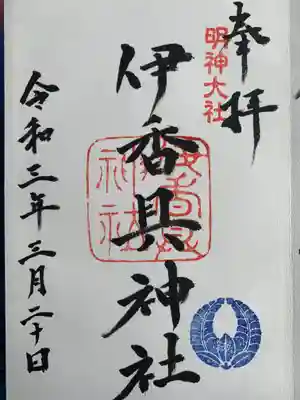 奉拝
明神大社
伊香具神社
伊香具神社
令和三年三月二十日